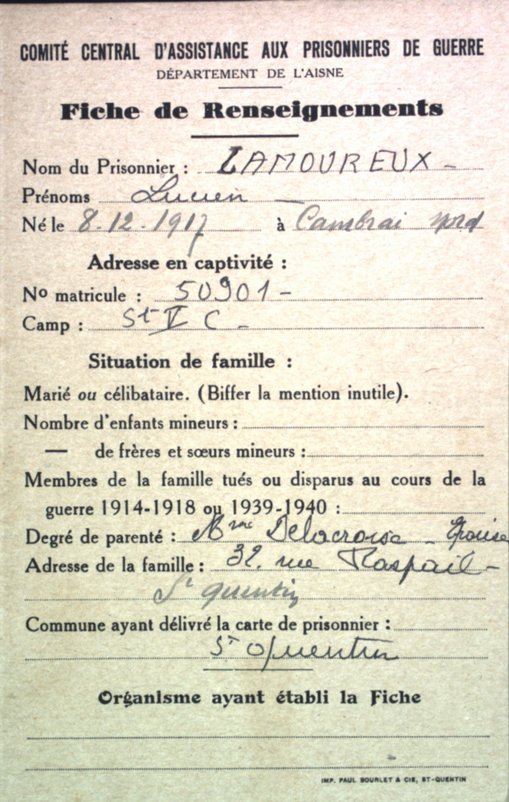 COMITÉ CENTRAL D'ASSISTANCE AUX PRISONNIERS DE GUERRE
DÉPARTEMENT DE L'AISNE
Fiche de Renseignements
Nom du Prisonnier : LAMOUREUX –
Prénoms Lucien –
Né le 8.12.1917 à Cambrai Nord
Adresse en captivité :
No matricule : 50901 –
Camp : St V C –
Situation de famille :
Marié ou célibataire. (Biffer la mention inutile).
Nombre d'enfants mineurs :
— de frères et sœurs mineurs :
Membres de la famille tués ou disparus au cours de la
guerre 1914-1918 ou 1939-1940 :
Degré de parenté : Mme Delacroix –
Adresse de la famille : 32, rue Raspail –
St Quentin
Commune ayant délivré la carte de prisonnier :
St Quentin
Organisme ayant établi la Fiche
IMP. PAUL BOURLET & CIE, ST-QUENTIN